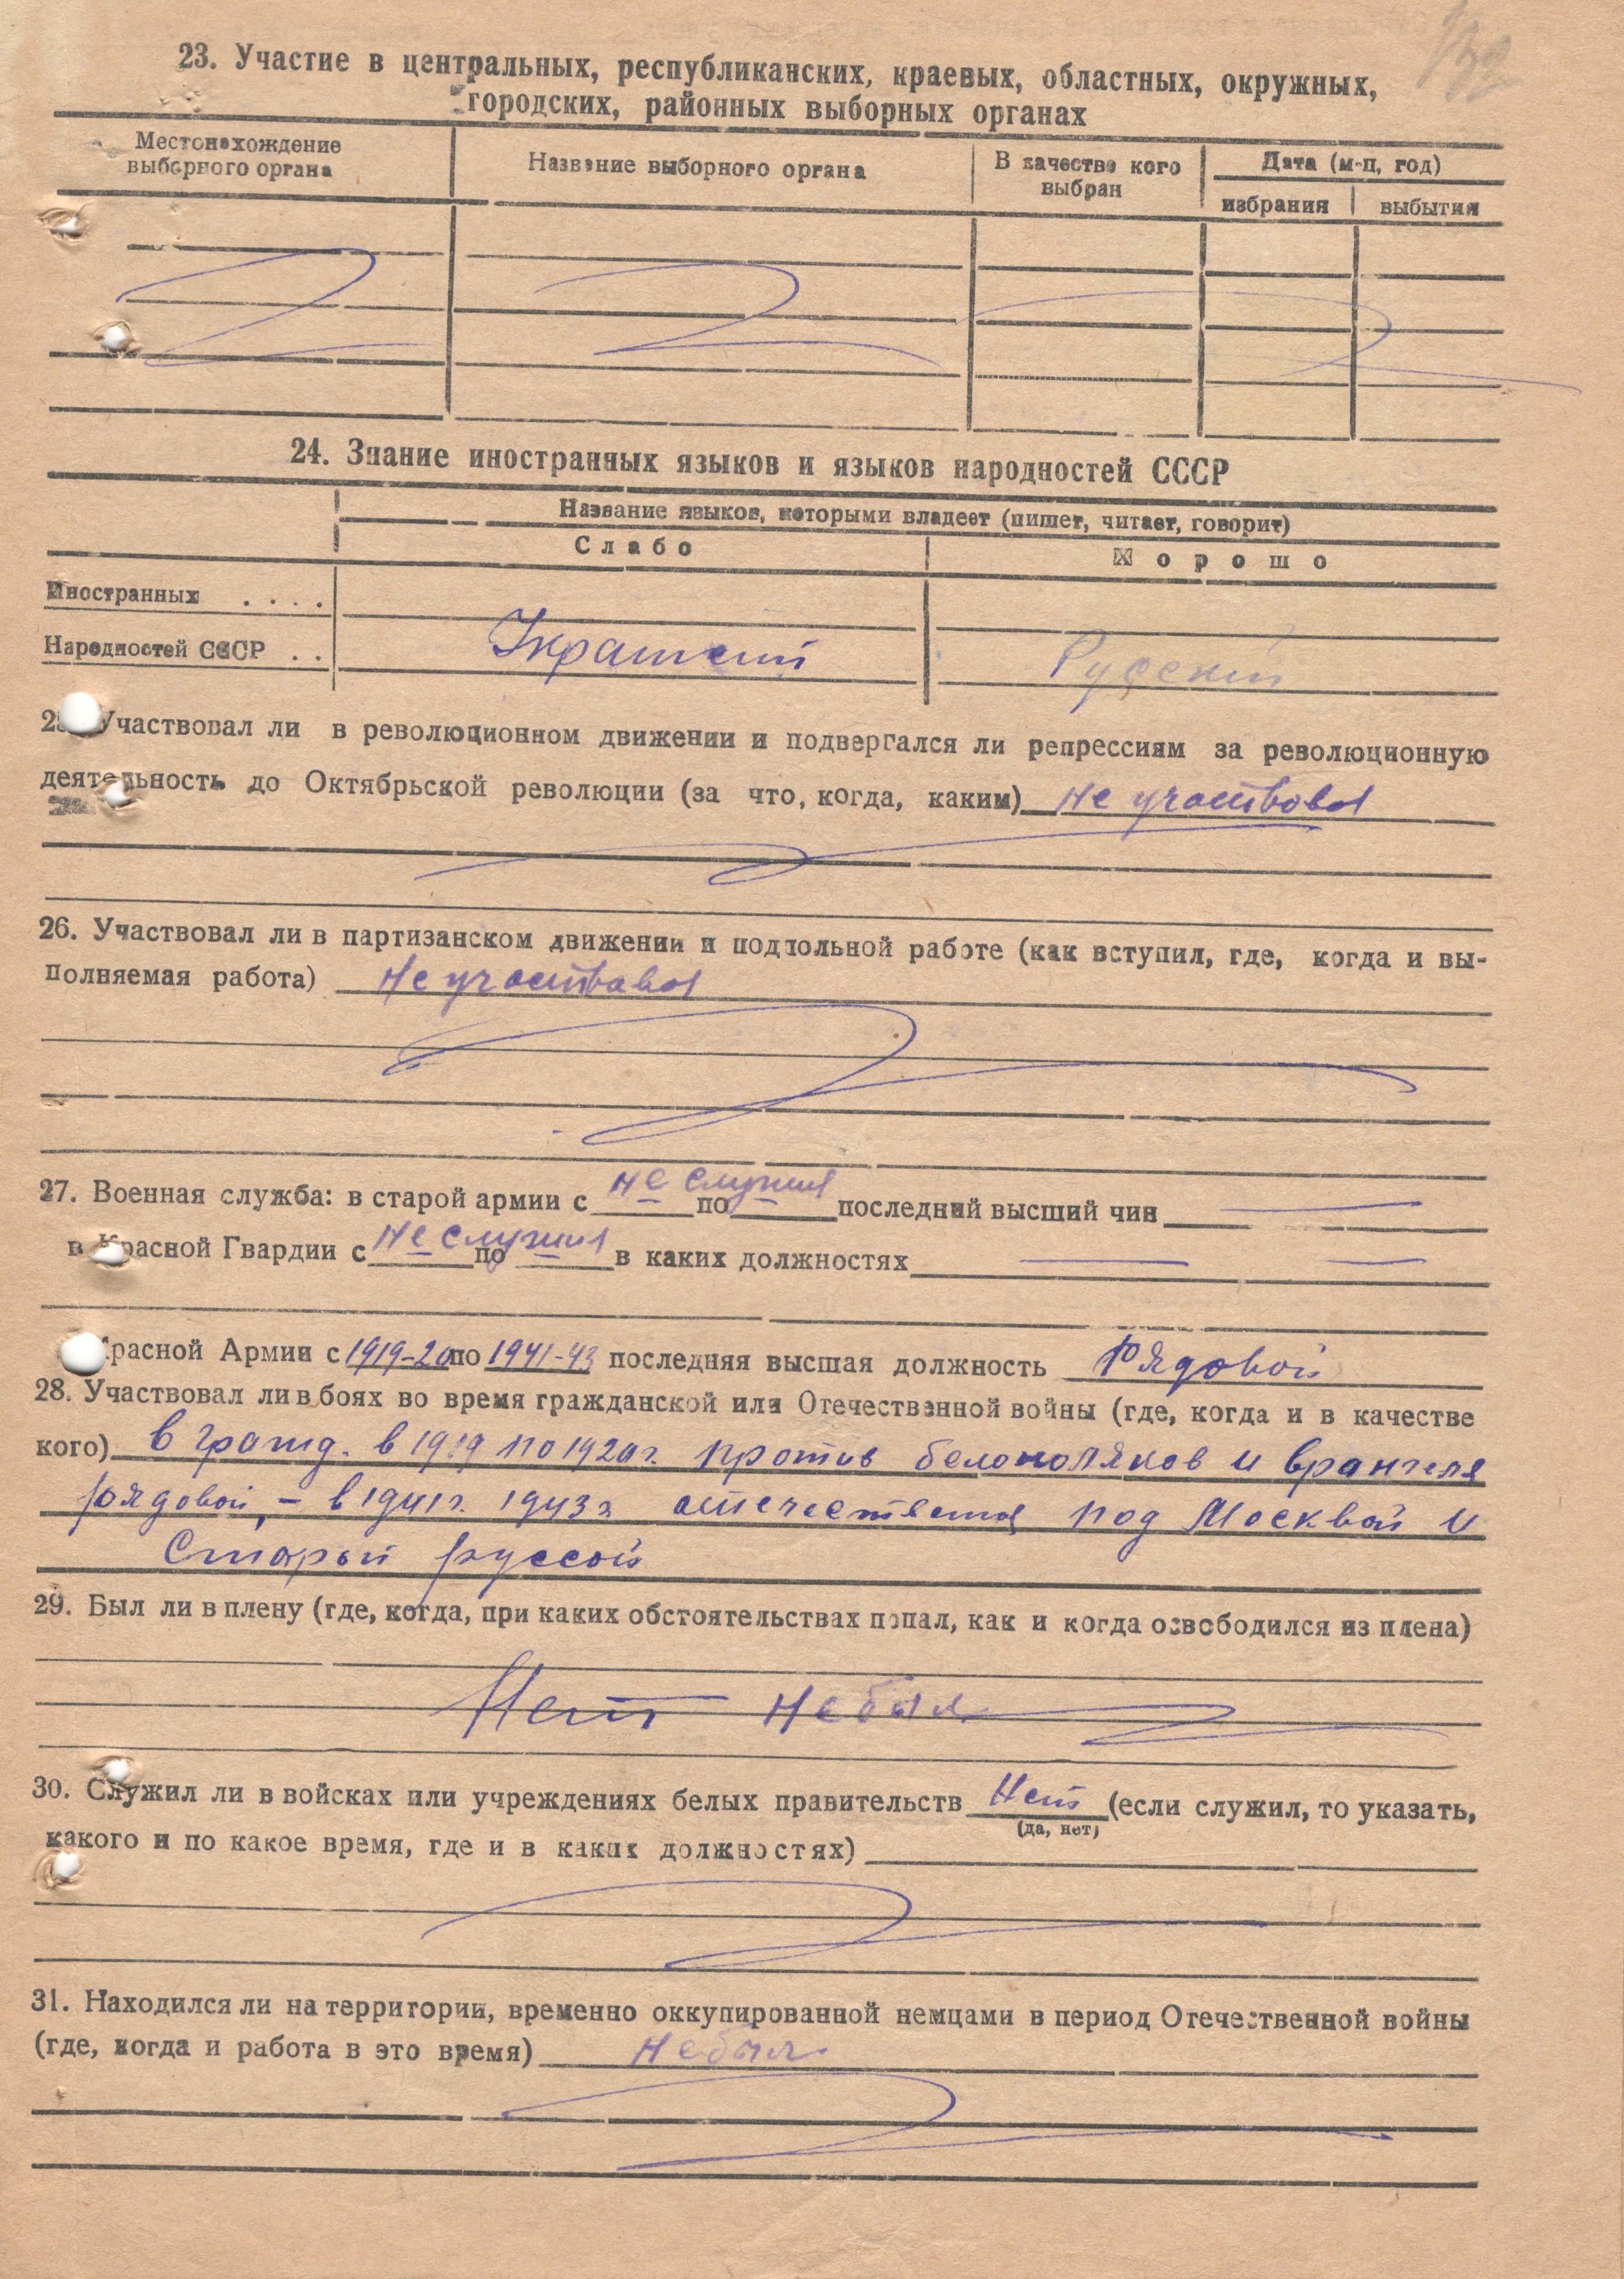 23. Участие в центральных, республиканских, краевых, областных, окружных,
городских, районных выборных органах
Местонахождение
выборного органа
Название выборного органа
В качестве кого
выбран
Дата (м-ц, год)
избрания
выбытия
24. Знание иностранных языков и языков народностей СССР
Название языков, которыми владеет (пишет, читает, говорит)
Слабо
Хорошо
Иностранных . . . .
Народностей СССР . . Украинский Руский
Участвовал ли в революционном движении и подвергался ли репрессиям за революционную
деятельность до Октябрьской революции (за что, когда, каким) Не участвовал
26. Участвовал ли в партизанском движении и подпольной работе (как вступил, где, когда и вы-
полняемая работа) Не участвовал
27. Военная служба: в старой армии с не служил по последний высший чин
в Красной Гвардии с Не служил по в каких должностях
Красной Армии с 1919-20 по 1941-43 последняя высшая должность Рядовой
28. Участвовал ли в боях во время гражданской или Отечественной войны (где, когда и в качестве
кого) в гражд. в 1919 по 1920 г. против белополяков и врангеля
рядовой, - в 1941 г. 1943 г. отечественная под Москвой и
Старый руссой
29. Был ли в плену (где, когда, при каких обстоятельствах попал, как и когда освободился из плена)
Нет не был
30. Служил ли в войсках или учреждениях белых правительств Нет (если служил, то указать,
(да, нет)
какого и по какое время, где и в каких должностях)
31. Находился ли на территории, временно оккупированной немцами в период Отечественной войны
(где, когда и работа в это время) не был